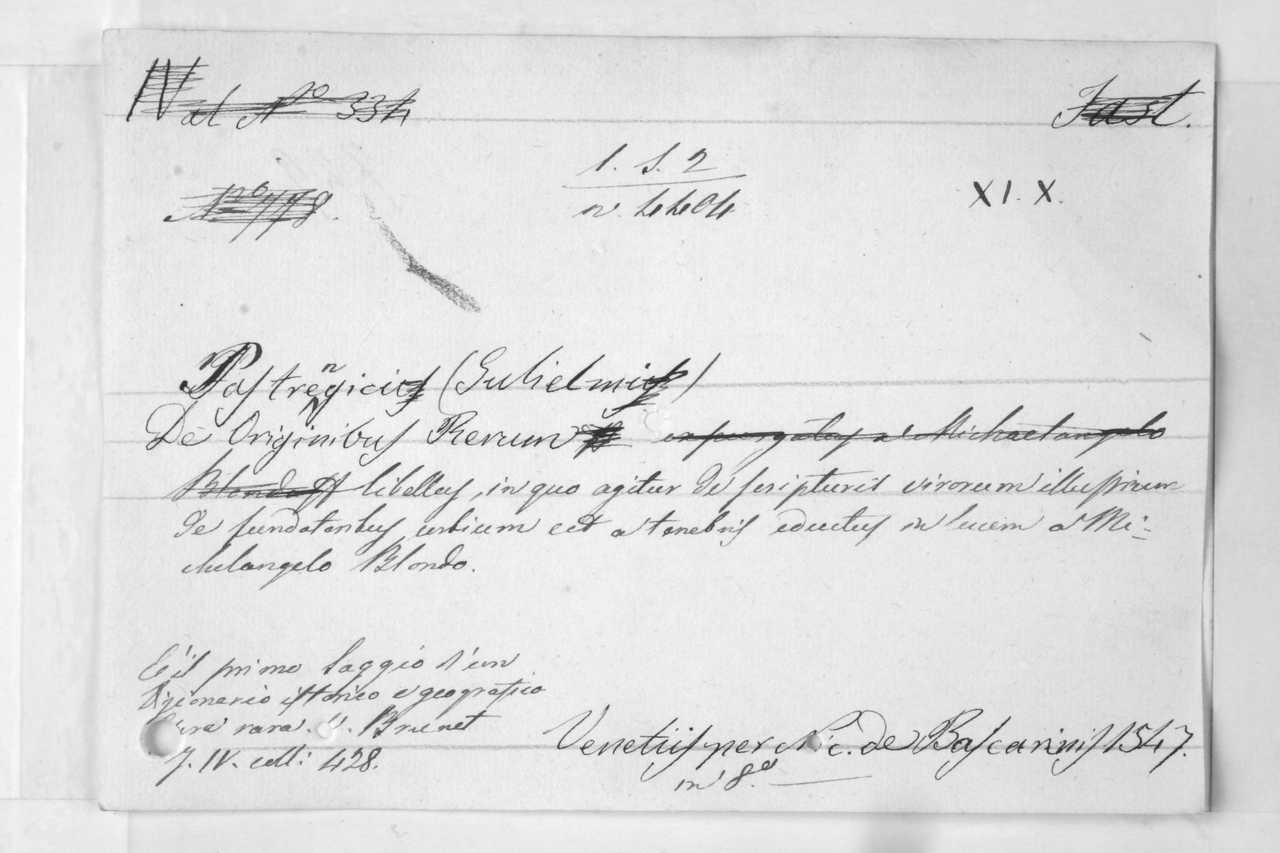 al No 334 Fast.
1. S. 2
No 778. n. 4404 XI. X.
Pastrengicus (Gulielmus)
De Originibus Rerum expurgatus a Michaelangelo
Blondo libellus, in quo agitur de scripturis virorum illustrium
de fundatoribus urbium ect a tenebris eductus in lucem a Mi-
chelangelo Blondo.
E' il primo saggio d'un
Dizionario istorico e geografico
Opera rara. V. Brunet
T. IV. coll: 428.
Venetiis per Nic. de Bascarinis 1547.
in 8o